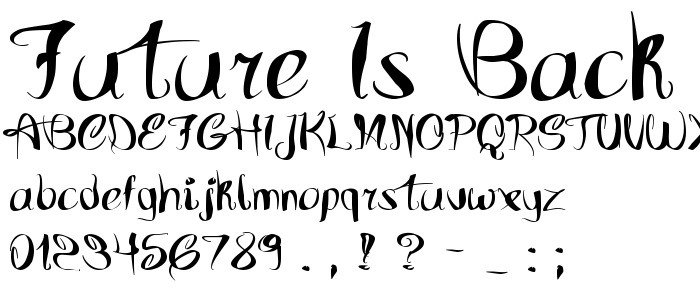 Future Is Back
ABCDEFGHIJKLMNOPQRSTUVWX
abcdefghijklmnopqrstuvwxyz
0123456789 . , ! ? - _ : ;